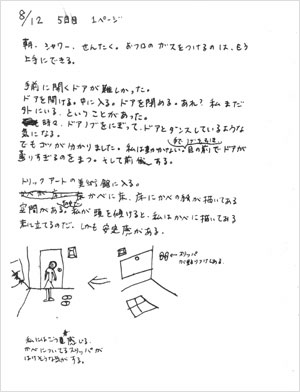 8/12 5日目 1ページ
朝、シャワー、せんたく。おフロのガスをつけるのは、もう
上手にできる。
手前に開くドアが難しかった。
ドアを開ける。中に入る。ドアを閉める。あれ？私まだ
外にいる、ということがあった。
時々、ドアノブをにぎって、ドアとダンスしているような
気になる。
でもコツが分かりました。私は動かない。目の前でドアが
通りすぎるのをまつ。そして前進する。
トリックアートの美術館に入る。
かべに床、床にかべの絵が描いてある
空間がある。私が頭を傾けると、私はかべに描いてある
床に立てるのだ。しかも安定感がある。
←スリッパ
がはりつけてある。
私にはこう感じる。
かべについてるスリッパが
はけそうな気がする。